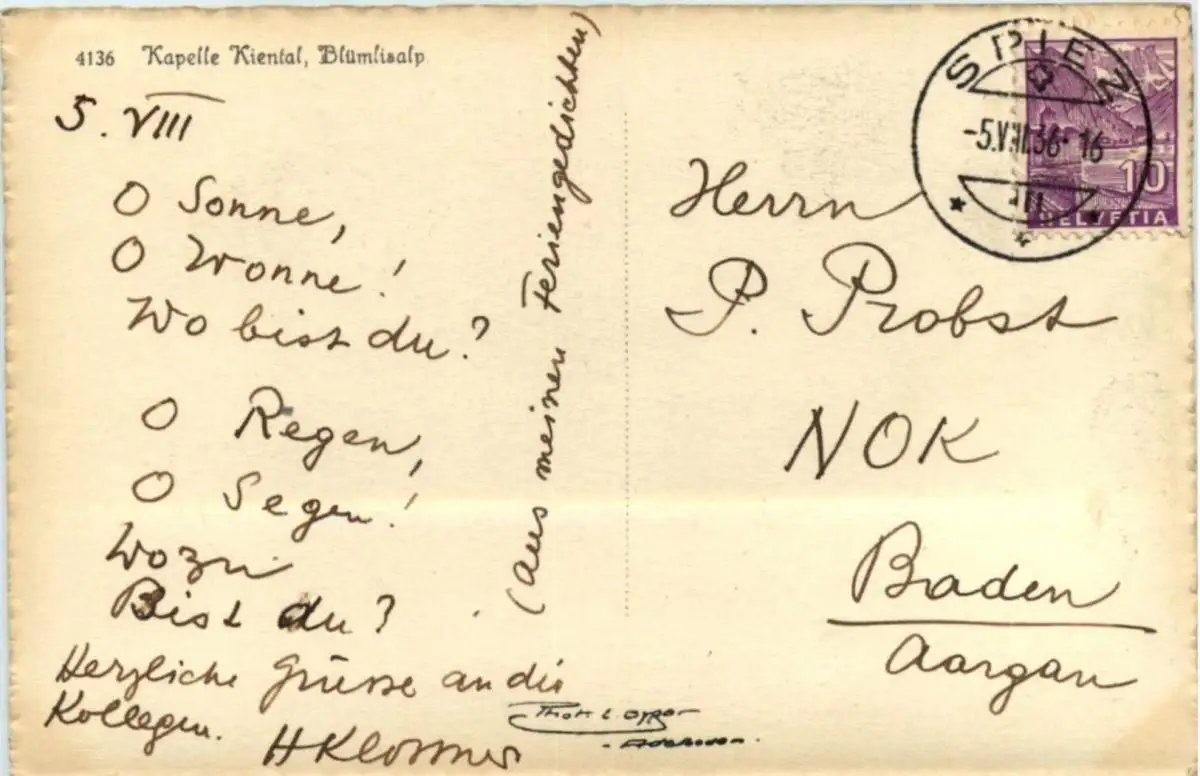 4136 Kapelle Kiental, Blümlisalp
5. VIII
O Sonne,
O Wonne!
Wo bist du?
O Regen,
O Segen!
Wozu
Bist du?
Herzliche Grüsse an die
Kollegen.
HKlossner
(Aus meinen Feriengedichten)
SPIEZ
-5.VIII.36-16
10
HELVETIA
Herrn
P. Probst
NOK
Baden
Aargau